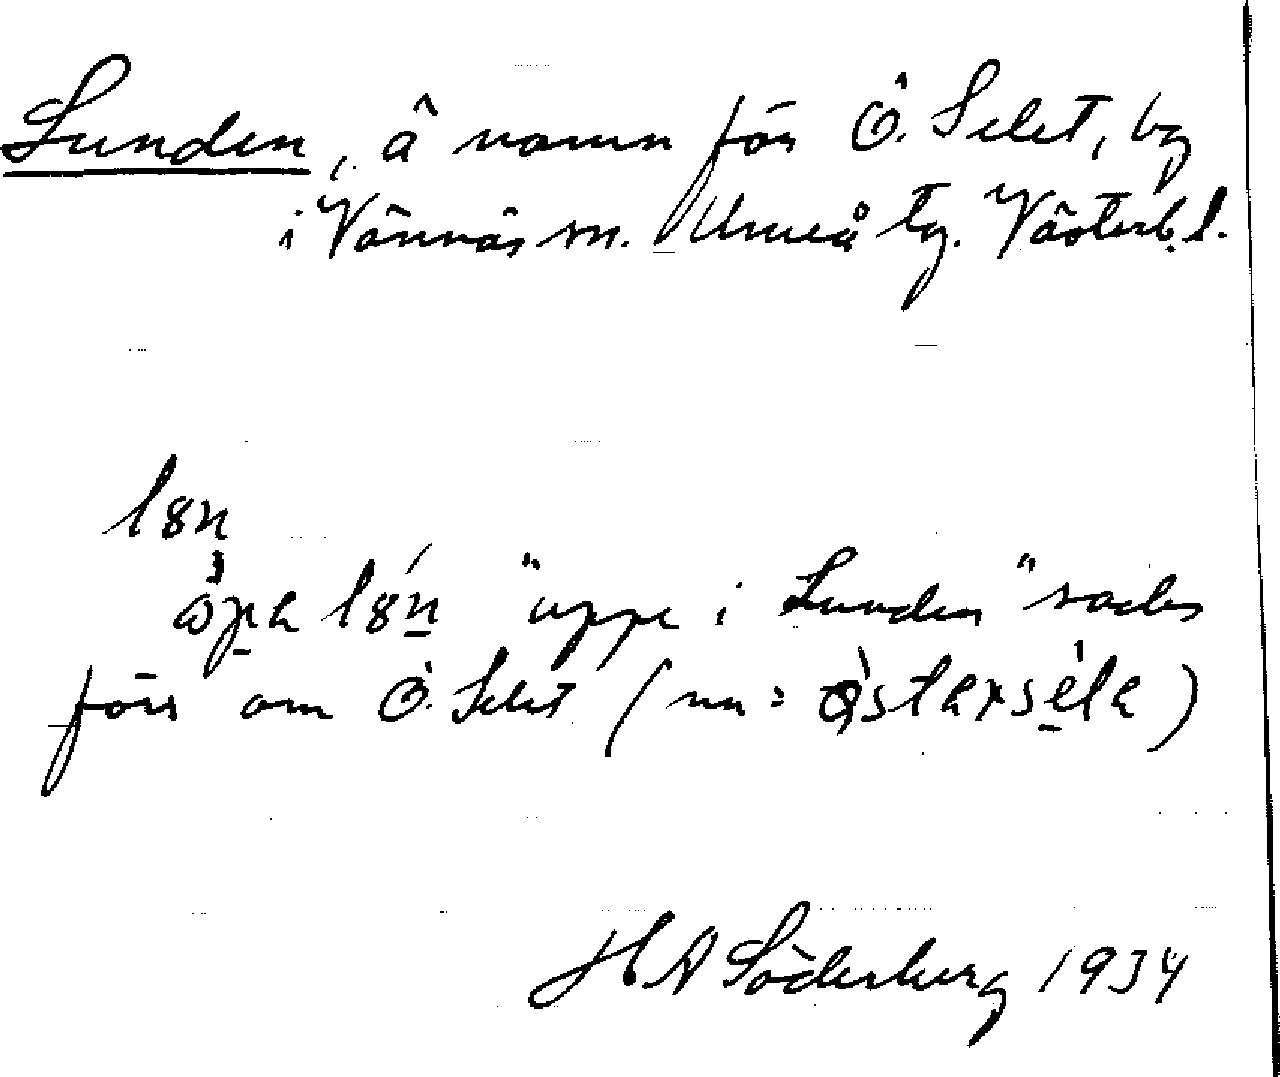 Lunden, ä namn för Ö. Selet, by
i Vännäs sn. Umeå tg. Västerb. l.
l8n
l8n "uppe i Lunden" sades
förr om Ö. Selet (nu =
H A Söderberg 1934